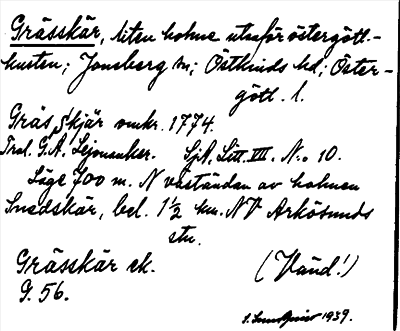 Grässkär, liten holme utanför östergötl.-
kusten; Jonsberg sn; Östkinds hd; Öster-
götl. l.
Gräs Skjär omkr. 1774.
Tral. G. A. Lejonanker. Sjk. Litt. VII. N:o 10.
Läge 700 m. N väständan av holmen
Snedskär, bel. 1½ km. NV Arkösunds
stn.
Grässkär ek.
G. 56.
(Vänd!)
1939.